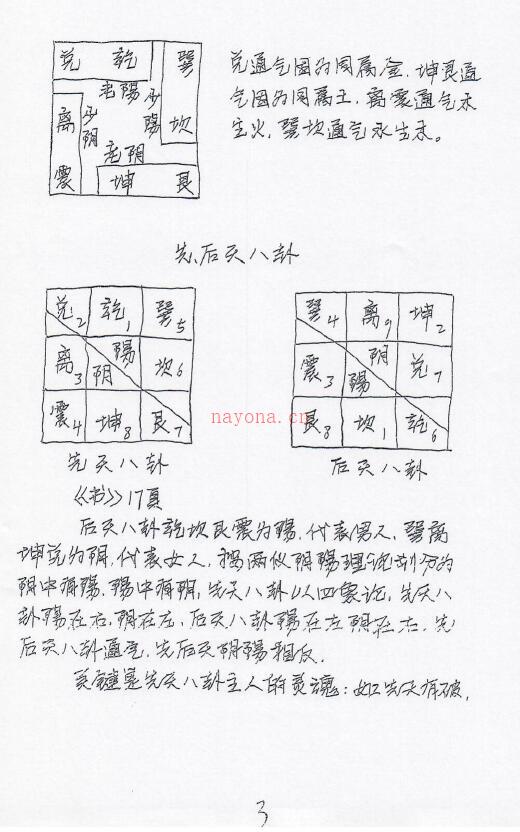 兑 乾 巽
老陽
少陽
离 少阴 坎
老阴
震 坤 艮
兑通气因为同属金,坤艮通
气因为同属土,离震通气木
生火,巽坎通气水生木。
先、后天八卦
兑2 乾1 巽5
离3 阴 陽 坎6
震4 坤8 艮7
先天八卦
巽4 离9 坤2
震3 阴 陽 兑7
艮8 坎1 乾6
后天八卦
nayona.cn
《书》17頁
后天八卦乾坎艮震为陽,代表男人,巽离
坤兑为阴,代表女人,按两仪阴陽理论划分的
阴中有陽,陽中有阴,先天八卦以四象论,先天八
卦陽在右,阴在左,后天八卦陽在左阴在右,先
后天八卦通气,先后天阴陽相反.
关鍵是先天八卦主人的灵魂:如先天有破,
3